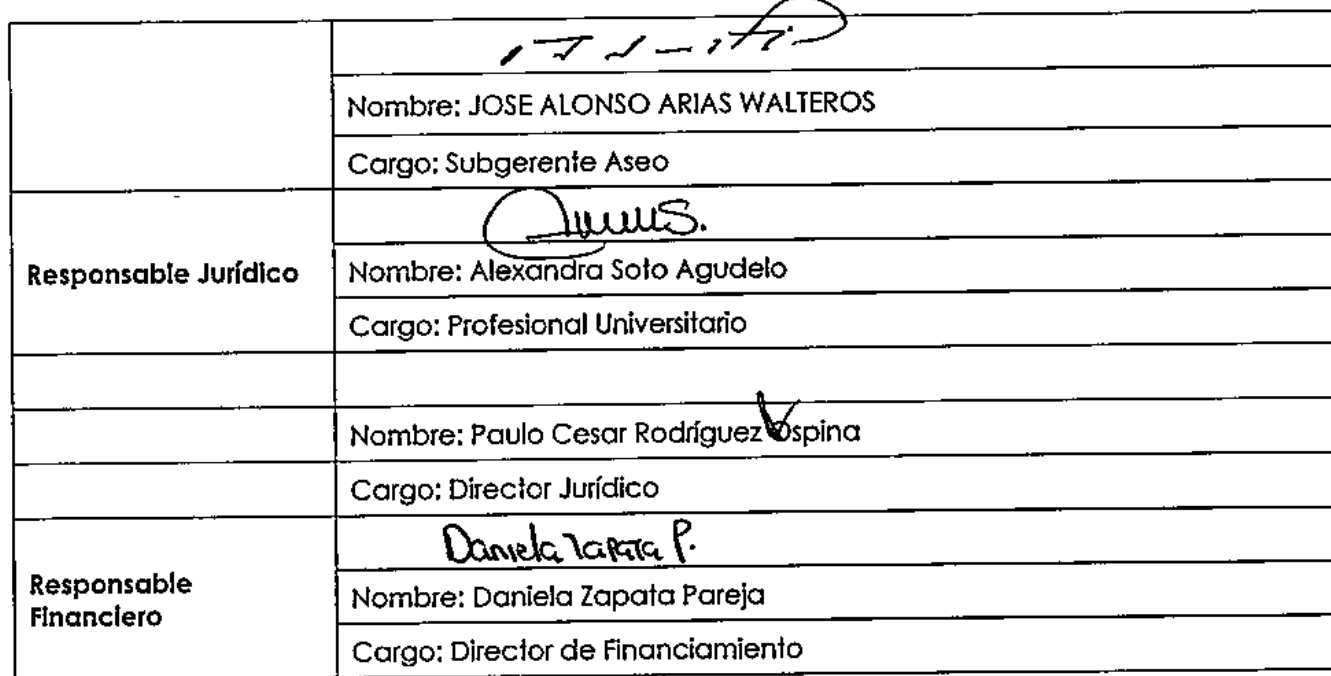 Nombre: JOSE ALONSO ARIAS WALTEROS
Cargo: Subgerente Aseo
Responsable Jurídico
Nombre: Alexandra Soto Agudelo
Cargo: Profesional Universitario
Nombre: Paulo Cesar Rodríguez Ospina
Cargo: Director Jurídico
Daniela Zapata P.
Responsable
Financiero
Nombre: Daniela Zapata Pareja
Cargo: Director de Financiamiento